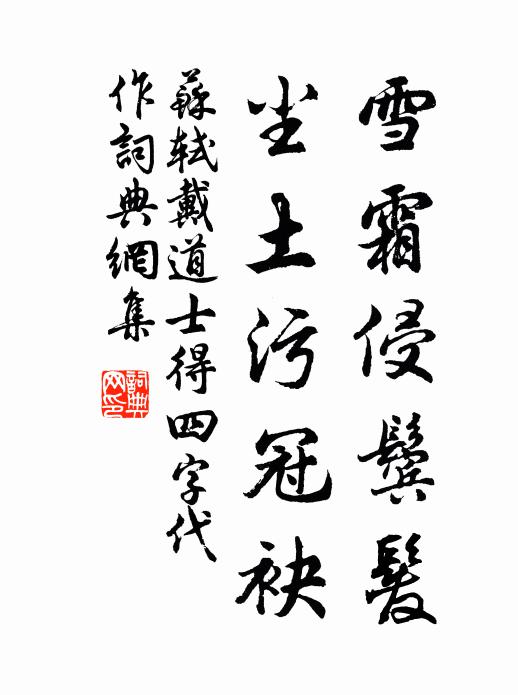 雪霜侵鬢髮
尘土污冠袂
蘇軾戴道士得四字代
作詞典網集
詞典网印